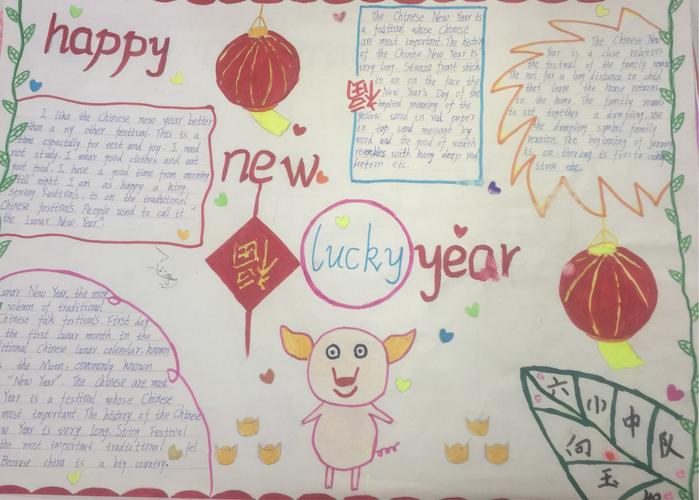 happy
new
lucky
year
I like the Chinese new year better
than a ny other festival. This is a
time especially for rest and joy. I need
not study. I wear good clothes and eat
good food. I have a good time from morning
till night. I am as happy a king.
Spring Festivals. is on the traditional
Chinese festivals. People used to call it "
the Lunar New Year".
The Chinese New Year is
a festival whose Chinese
are most important. The history
of the Chinese New Year is
very long.
in an on the face the
New Year's Day of the
meaning of the
yellow word in red paper
in top send message by
word and the good of wealth
resembles with hang deep red
lantern etc.
福
The Chinese New
Year is a close relatives
the festival of the family reunion
The not far a long distance
that leave the house returns
to the home. The family
to sit together a dumpling, use
the dumpling symbol family
reunion. The beginning of January
is on
etc.
福
Lunar New Year, the most
solemn of traditional
Chinese folk festivals. First day
the first lunar month in the
traditional Chinese lunar calendar. known
the Moon. commonly known
"New Year". The Chinese are most
Year is a festival whose Chinese
most important. The history of the Chinese
Year is very long. Spring Festival
the most important tradictional fel
Because china is a big country.
六小中队
向玉